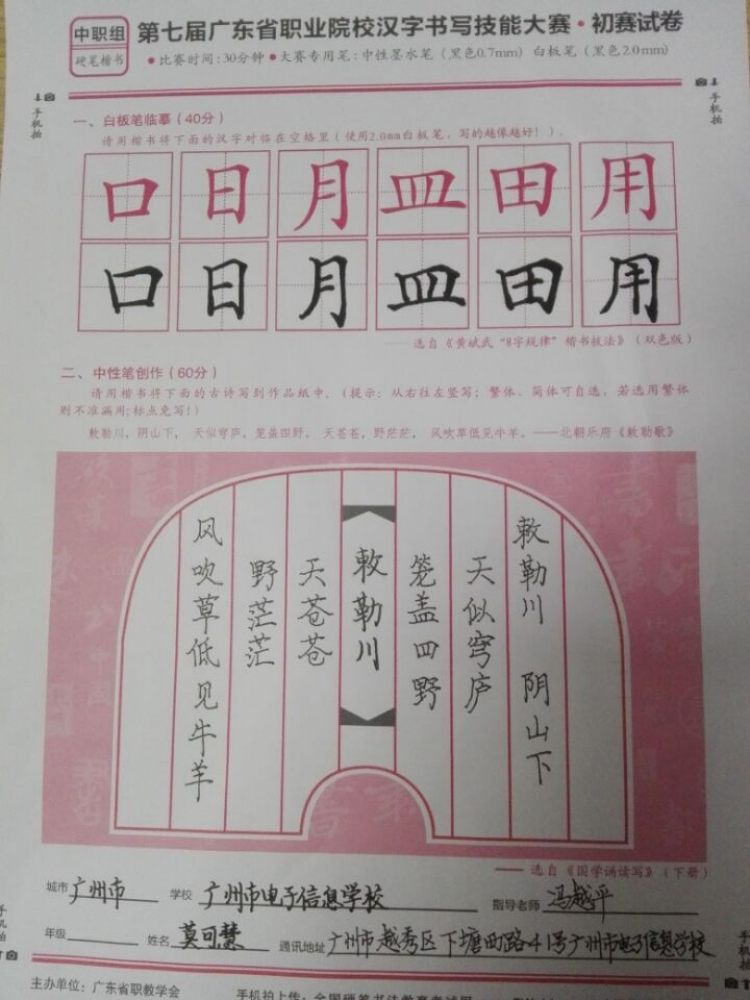 中职组
硬笔楷书
第七届广东省职业院校汉字书写技能大赛·初赛试卷
●比赛时间:30分钟●大赛专用笔:中性墨水笔(黑色0.7mm) 白板笔(黑色2.0mm)
手机拍
手机拍
一、白板笔临摹(40分)
请用楷书将下面的汉字对临在空格里(使用2.0mm白板笔,写的越像越好!)。
口 日 月 皿 田 用
口 日 月 皿 田 用
——选自《黄斌武“8字规律”楷书技法》(双色版)
二、中性笔创作(60分)
请用楷书将下面的古诗写到作品纸中。(提示:从右往左竖写;繁体、简体可自选,若选用繁体
则不准漏用;标点免写!)
敕勒川,阴山下, 天似穹庐,笼盖四野。 天苍苍,野茫茫, 风吹草低见牛羊。——北朝乐府《敕勒歌》
敕勒川 阴山下
天似穹庐
笼盖四野
敕勒川
天苍苍
野茫茫
风吹草低见牛羊
——选自《国学诵读写》(下册)
城市 广州市 学校 广州市电子信息学校 指导老师 冯越平
年级 姓名 莫可慧 通讯地址 广州市越秀区下塘西路41号广州市电子信息学校
手机拍
主办单位:广东省职教学会
手机拍上传:全国硬笔书法教育考试网